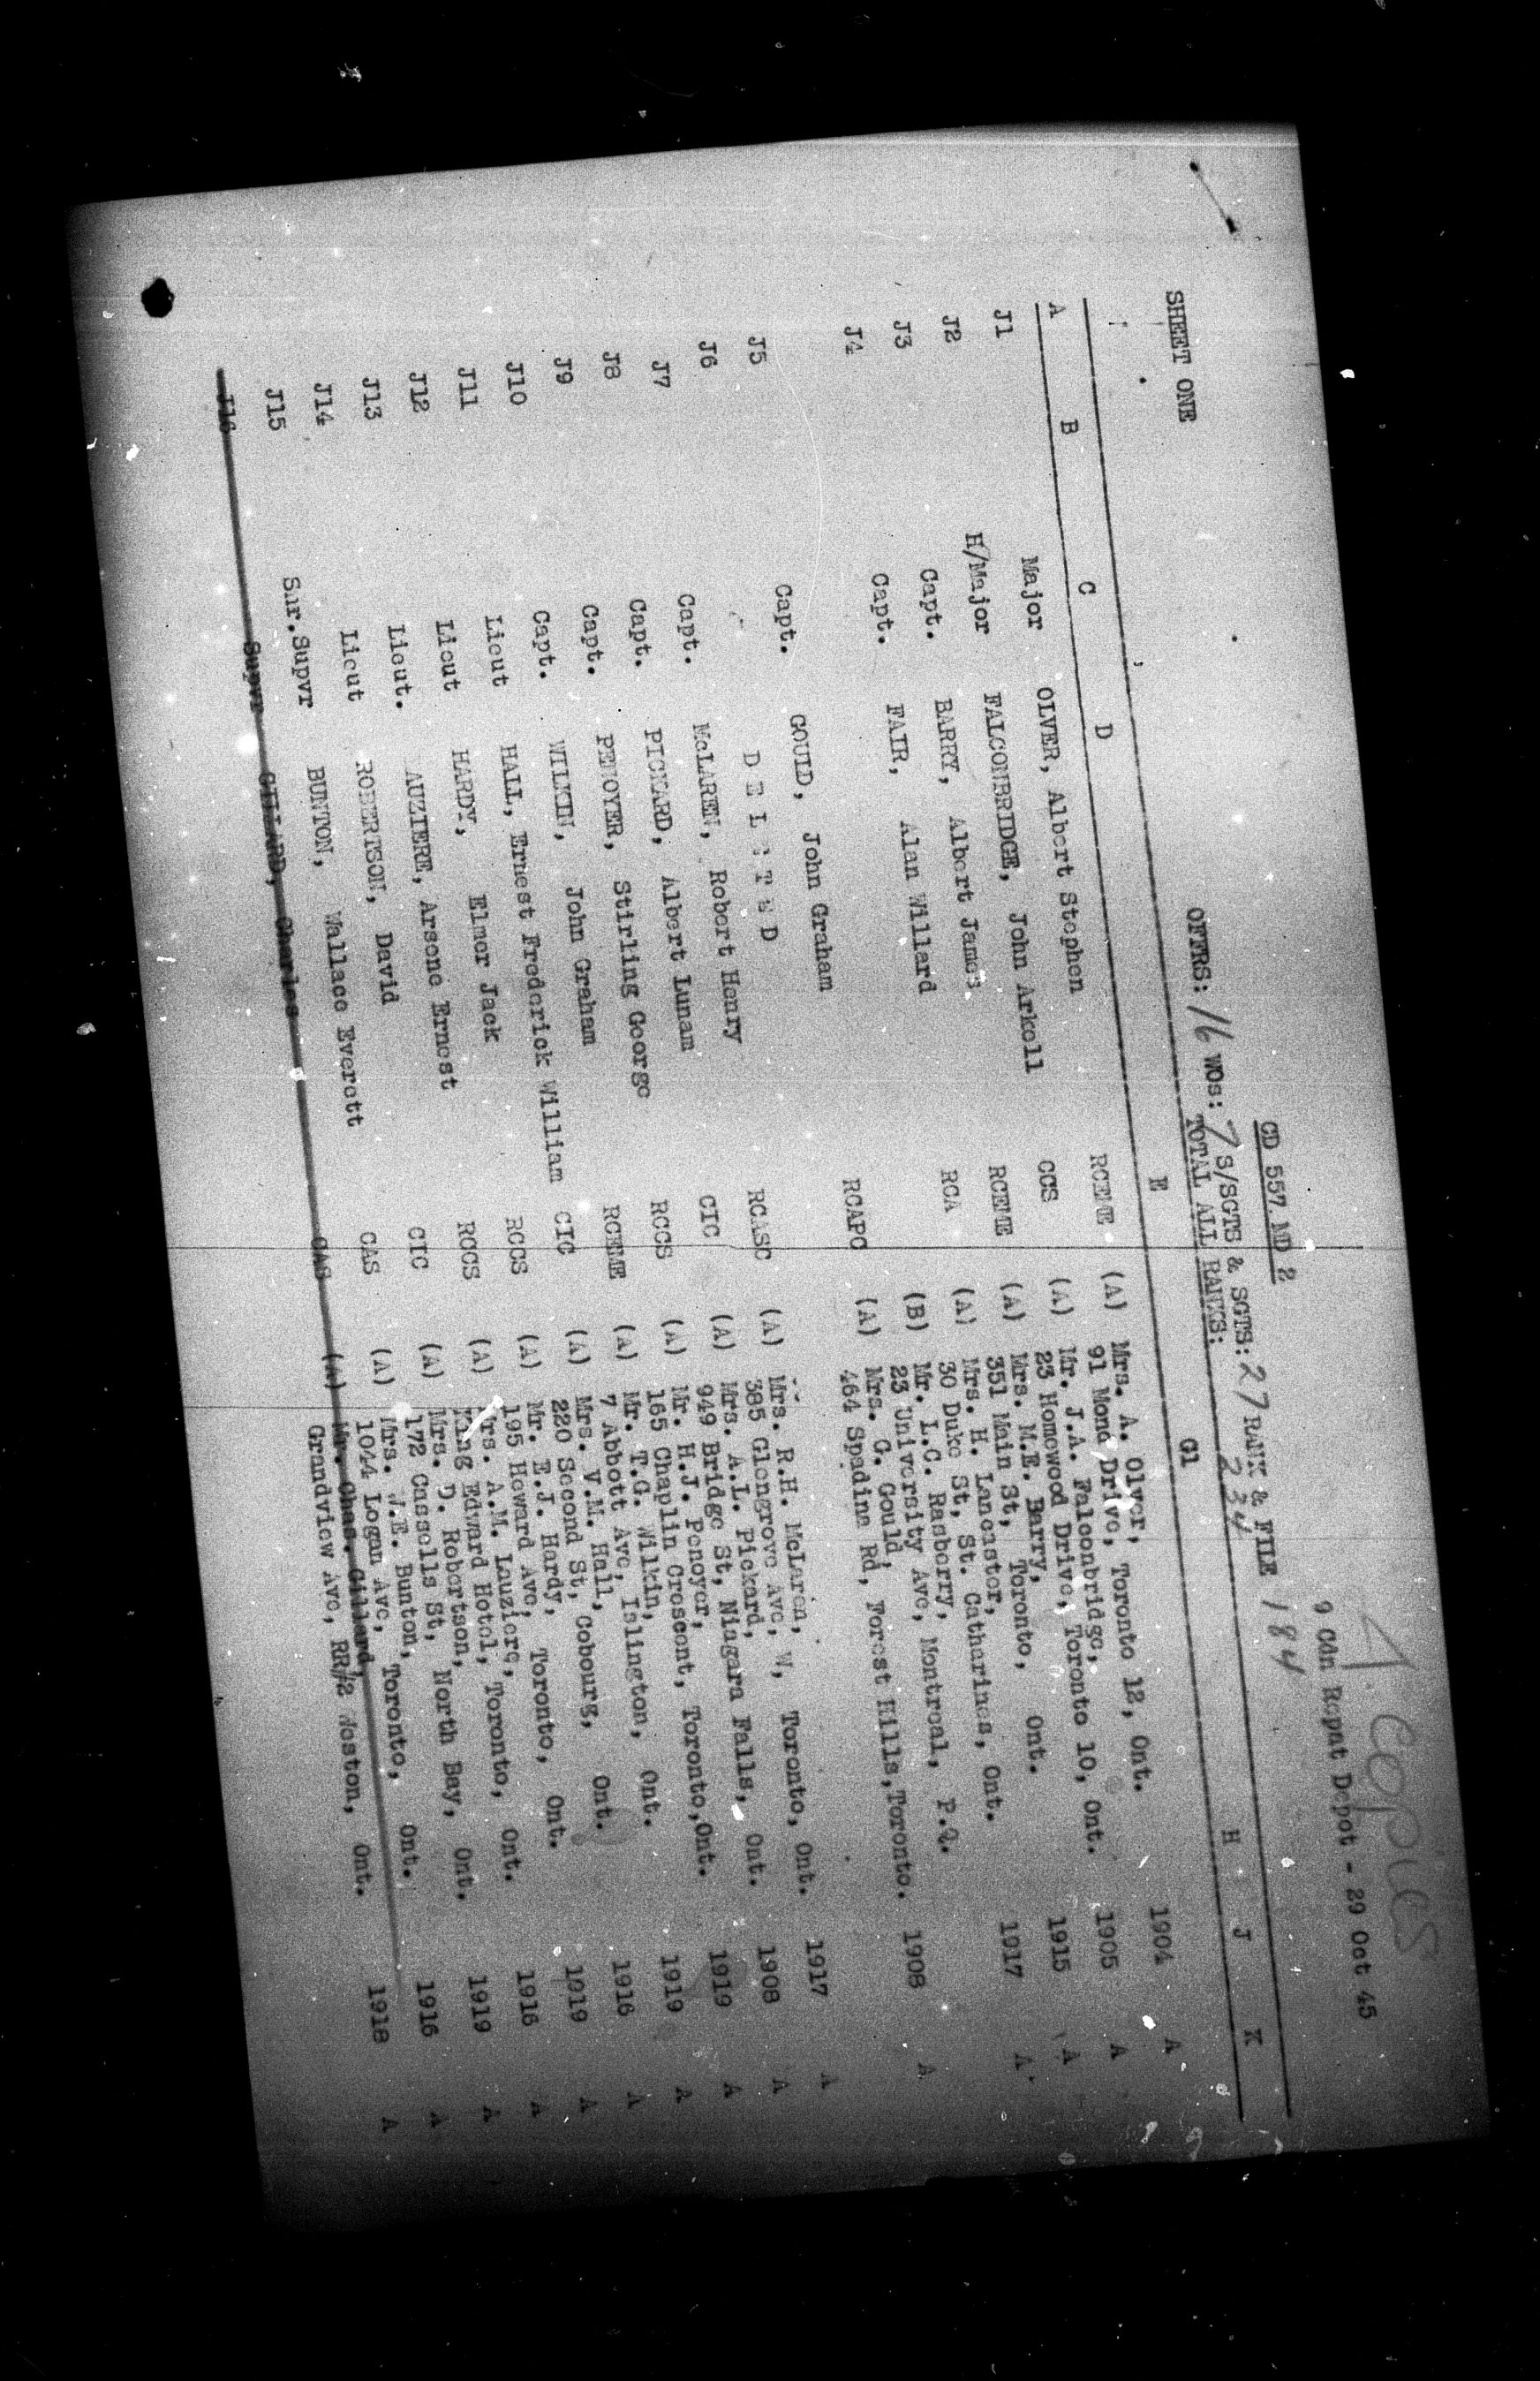 1. copies
9 Cdn Repat Depot - 29 Oct 45
CD 557 MD 2
SHEET ONE OFFRS: 16 WOs: 7 S/SGTS & SGTS: 27 RANK & FILE 184
TOTAL ALL RANKS: 234
A B C D E G1 H J K
J1 Major OLVER, Albert Stephen RCEME (A) Mrs. A. Olver, 1904 A
91 Mona Drive, Toronto 12, Ont.
J2 H/Major FALCONBRIDGE, John Arkell CCS (A) Mr. J.A. Falconbridge, 1905 A
23 Homewood Drive, Toronto 10, Ont.
J3 Capt. BARRY, Albert James RCEME (A) Mrs. M.E. Barry, 1915 A
351 Main St, Toronto, Ont.
J4 Capt. FAIR, Alan Willard RCA (A) Mrs. H. Lancaster, 1917 A
30 Duke St, St. Catharines, Ont.
(B) Mr. L.C. Rasberry,
23 University Ave, Montreal, P.Q.
J5 Capt. GOULD, John Graham RCAPC (A) Mrs. G. Gould, 1908 A
464 Spadina Rd, Forest Hills, Toronto.
J6 D E L E T E D
J7 Capt. McLAREN, Robert Henry RCASC (A) Mrs. R.H. McLaren, 1917 A
385 Glengrove Ave, W, Toronto, Ont.
J8 Capt. PICKARD, Albert Lunam CIC (A) Mrs. A.L. Pickard, 1908 A
949 Bridge St, Niagara Falls, Ont.
J9 Capt. PENOYER, Stirling George RCCS (A) Mr. H.J. Penoyer, 1919 A
165 Chaplin Crescent, Toronto, Ont.
J10 Capt. WILKIN, John Graham RCEME (A) Mr. T.G. Wilkin, 1919 A
7 Abbott Ave, Islington, Ont.
J11 Lieut HALL, Ernest Frederick William CIC (A) Mrs. V.M. Hall, 1916 A
220 Second St, Cobourg, Ont.
J12 Lieut HARDY, Elmer Jack RCCS (A) Mr. E.J. Hardy, 1919 A
195 Howard Ave, Toronto, Ont.
J13 Lieut. LAUZIERE, Arsene Ernest RCCS (A) Mrs. A.M. Lauziere, 1916 A
King Edward Hotel, Toronto, Ont.
J14 Lieut ROBERTSON, David CIC (A) Mrs. D. Robertson, 1919 A
172 Cassells St, North Bay, Ont.
J15 Snr.Supvr BUNTON, Wallace Everett CAS (A) Mrs. W.E. Bunton, 1916 A
1044 Logan Ave, Toronto, Ont.
J16 Supvr GILLARD, Charles CAS (A) Mr. Chas. Gillard, 1918 A
Grandview Ave, RR#2 Weston, Ont.